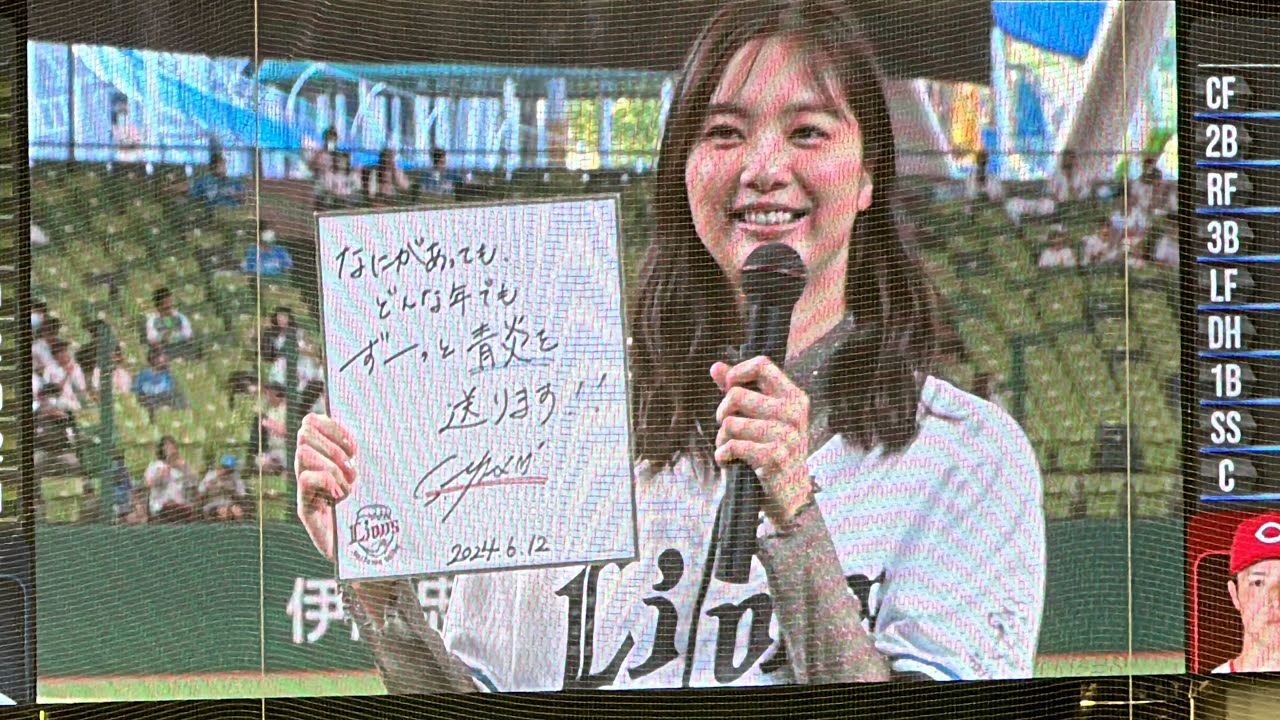 なにがあっても、
どんな年でも
ずーっと青炎を
送ります!!
Lions
2024.6.12
伊
Lions
CF
2B
RF
3B
LF
DH
1B
SS
C
C